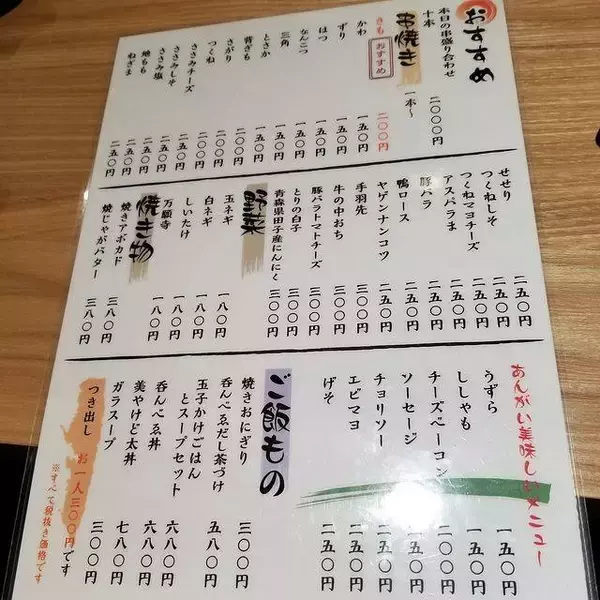 おすすめ
本日の串盛り合わせ
十本 二〇〇〇円
串焼き 一本〜
きも おすすめ 二〇〇円
かわ 一五〇円
ずり 一五〇円
はつ 一五〇円
なんこつ 一五〇円
三角 一五〇円
とさか 一五〇円
背ぎも 二〇〇円
さがり 二〇〇円
つくね 二〇〇円
ささみチーズ 二五〇円
ささみしそ 二五〇円
ささみ塩 二五〇円
地もも 二五〇円
ねぎま 二五〇円
せせり 二五〇円
つくねしそ 二五〇円
つくねマヨチーズ 二五〇円
アスパラま 二五〇円
豚バラ 二五〇円
鴨ロース 二五〇円
ヤゲンナンコツ 二五〇円
手羽先 三〇〇円
牛の中おち 三〇〇円
豚バラトマトチーズ 三〇〇円
とりの白子 三〇〇円
青森県田子産にんにく 三〇〇円
野菜
玉ネギ 一八〇円
白ネギ 一八〇円
しいたけ 一八〇円
万願寺 一八〇円
焼き物
焼きアボカド 三八〇円
焼じゃがバター 三八〇円
あんがい美味しいメニュー
うずら 一五〇円
ししゃも 一五〇円
チーズベーコン 二〇〇円
ソーセージ 二五〇円
チョリソー 二五〇円
エビマヨ 二五〇円
げそ 二五〇円
ご飯もの
焼きおにぎり 三〇〇円
呑んべゑだし茶づけ 五八〇円
玉子かけごはん
とスープセット 五八〇円
呑んべゑ丼 六八〇円
美やけど太丼 六八〇円
ガラスープ 三〇〇円
つき出し お一人三〇〇円です
※すべて税抜き価格です